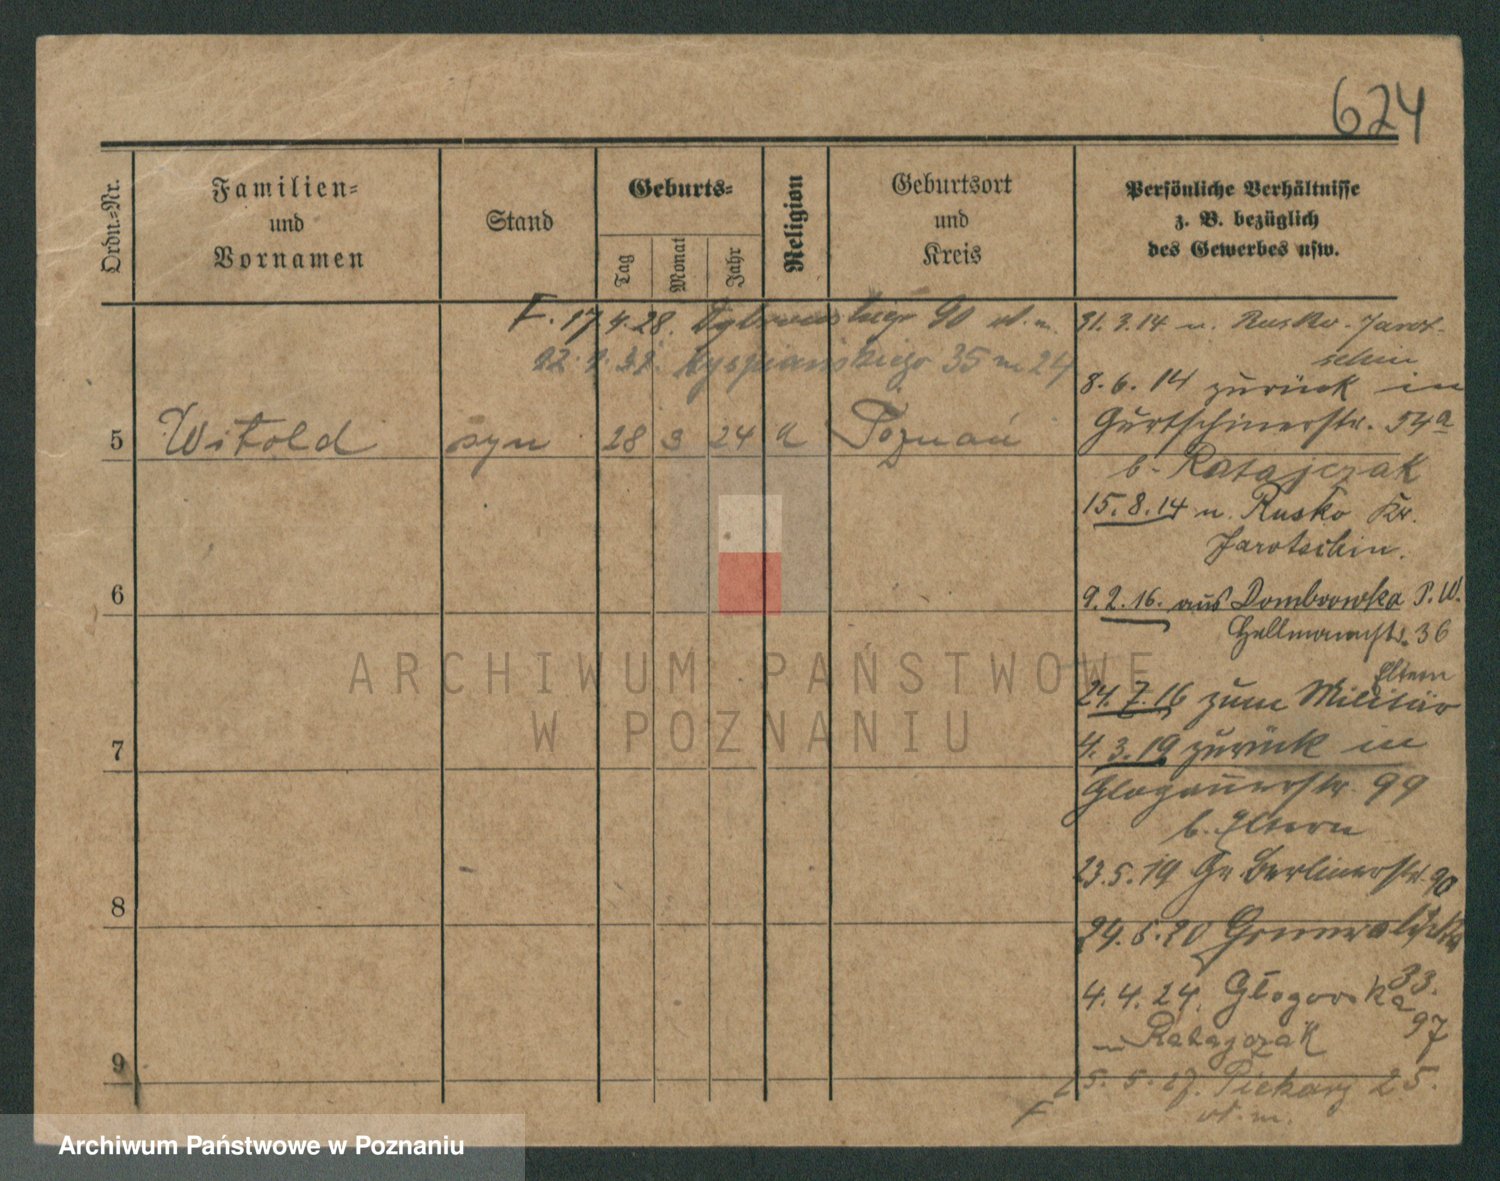 624
Ordn.-Nr.
Familien-
und
Vornamen
Stand
Geburts-
Tag
Monat
Jahr
Religion
Geburtsort
und
Kreis
Persönliche Verhältnisse
z. B. bezüglich
des Gewerbes usw.
F. 17.4.28. 90 w. m.
12. 1. 32. Wyspiańskiego 35 m 24
5 Witold syn 28 3 24 k Poznań
6
7
8
9
31.3.14 n. Rusko - Jarot-
schin
8.6.14 zurück in
Gurtschinerstr. 54a
b. Ratajczak
15.8.14 n. Rusko Kr.
Jarotschin.
9.2.16. aus Dombrowka P. W.
36
Eltern
24.7.16 zum Militär
4.3.19 zurück in
Glogauerstr. 99
b. Eltern
23.5.19 Gr. Berlinerstr. 90
24.5.20
33.
4.4.24. Głogowska
97
Ratajczak
25. 5. 27. Piekary 25.
F w. m.
ARCHIWUM PAŃSTWOWE
W POZNANIU
Archiwum Państwowe w Poznaniu